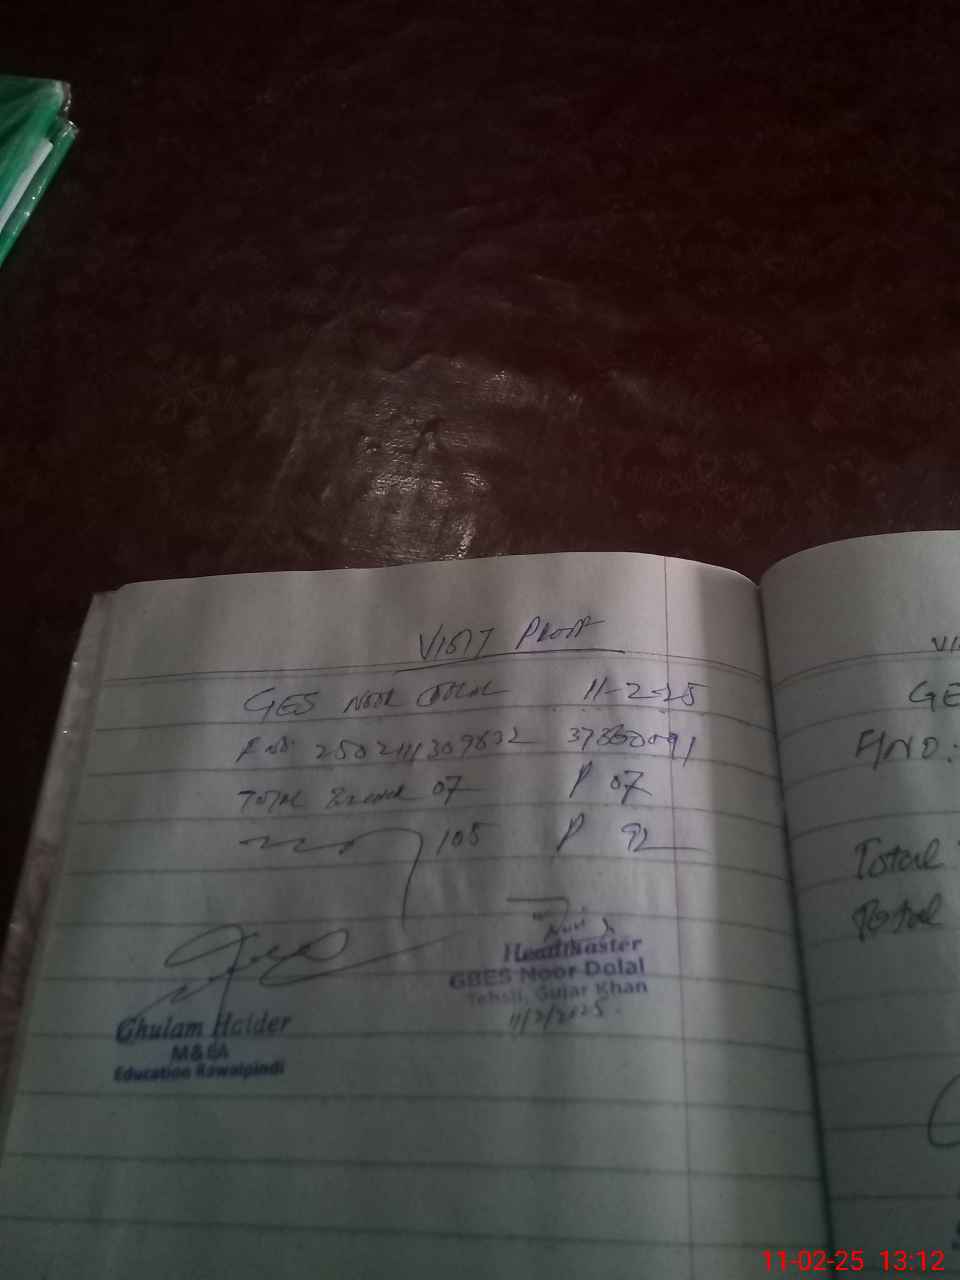 VISIT PROOF
GES NOOR DOLAL 11-2-25
F.NO. 2502111309832
TOTAL 07 P 07
105 P 92
Headmaster
GBES Noor Dolal
Tehsil, Gujar Khan
11/2/2025.
Ghulam Haider
M&EA
Education Rawalpindi
VI
GE
F/NO:
Total
Total
11-02-25 13:12